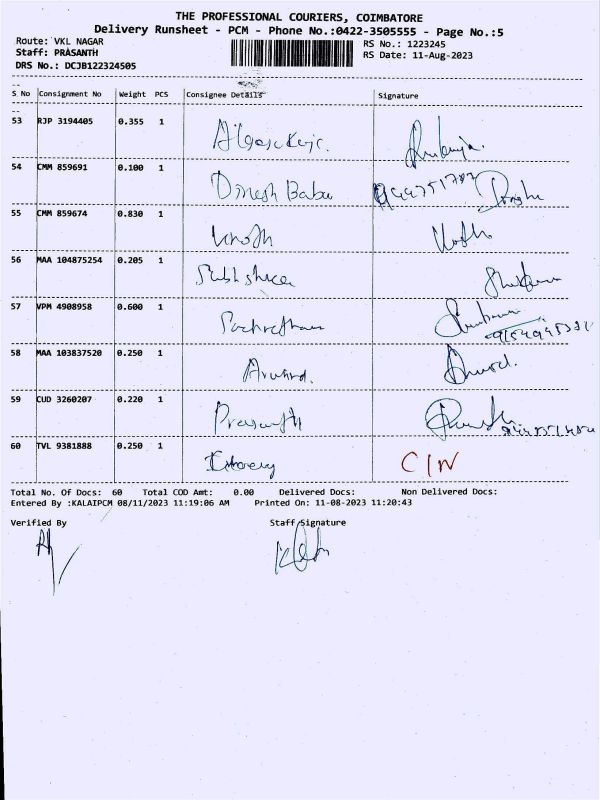 THE PROFESSIONAL COURIERS, COIMBATORE
Delivery Runsheet - PCM - Phone No.:0422-3505555 - Page No.:5
Route: VKL NAGAR RS No.: 1223245
Staff: PRASANTH RS Date: 11-Aug-2023
DRS No.: DCJB122324505
S No Consignment No Weight PCS Consignee Details Signature
53 RJP 3194405 0.355 1
54 CMM 859691 0.100 1 Dinesh Babu
55 CMM 859674 0.830 1 Vinoth
56 MAA 104875254 0.205 1
57 VPM 4908958 0.600 1
58 MAA 103837520 0.250 1 Aravind.
59 CUD 3260207 0.220 1 Prasanth
60 TVL 9381888 0.250 1 C/N
Total No. Of Docs: 60 Total COD Amt: 0.00 Delivered Docs: Non Delivered Docs:
Entered By :KALAIPCM 08/11/2023 11:19:06 AM Printed On: 11-08-2023 11:20:43
Verified By Staff Signature